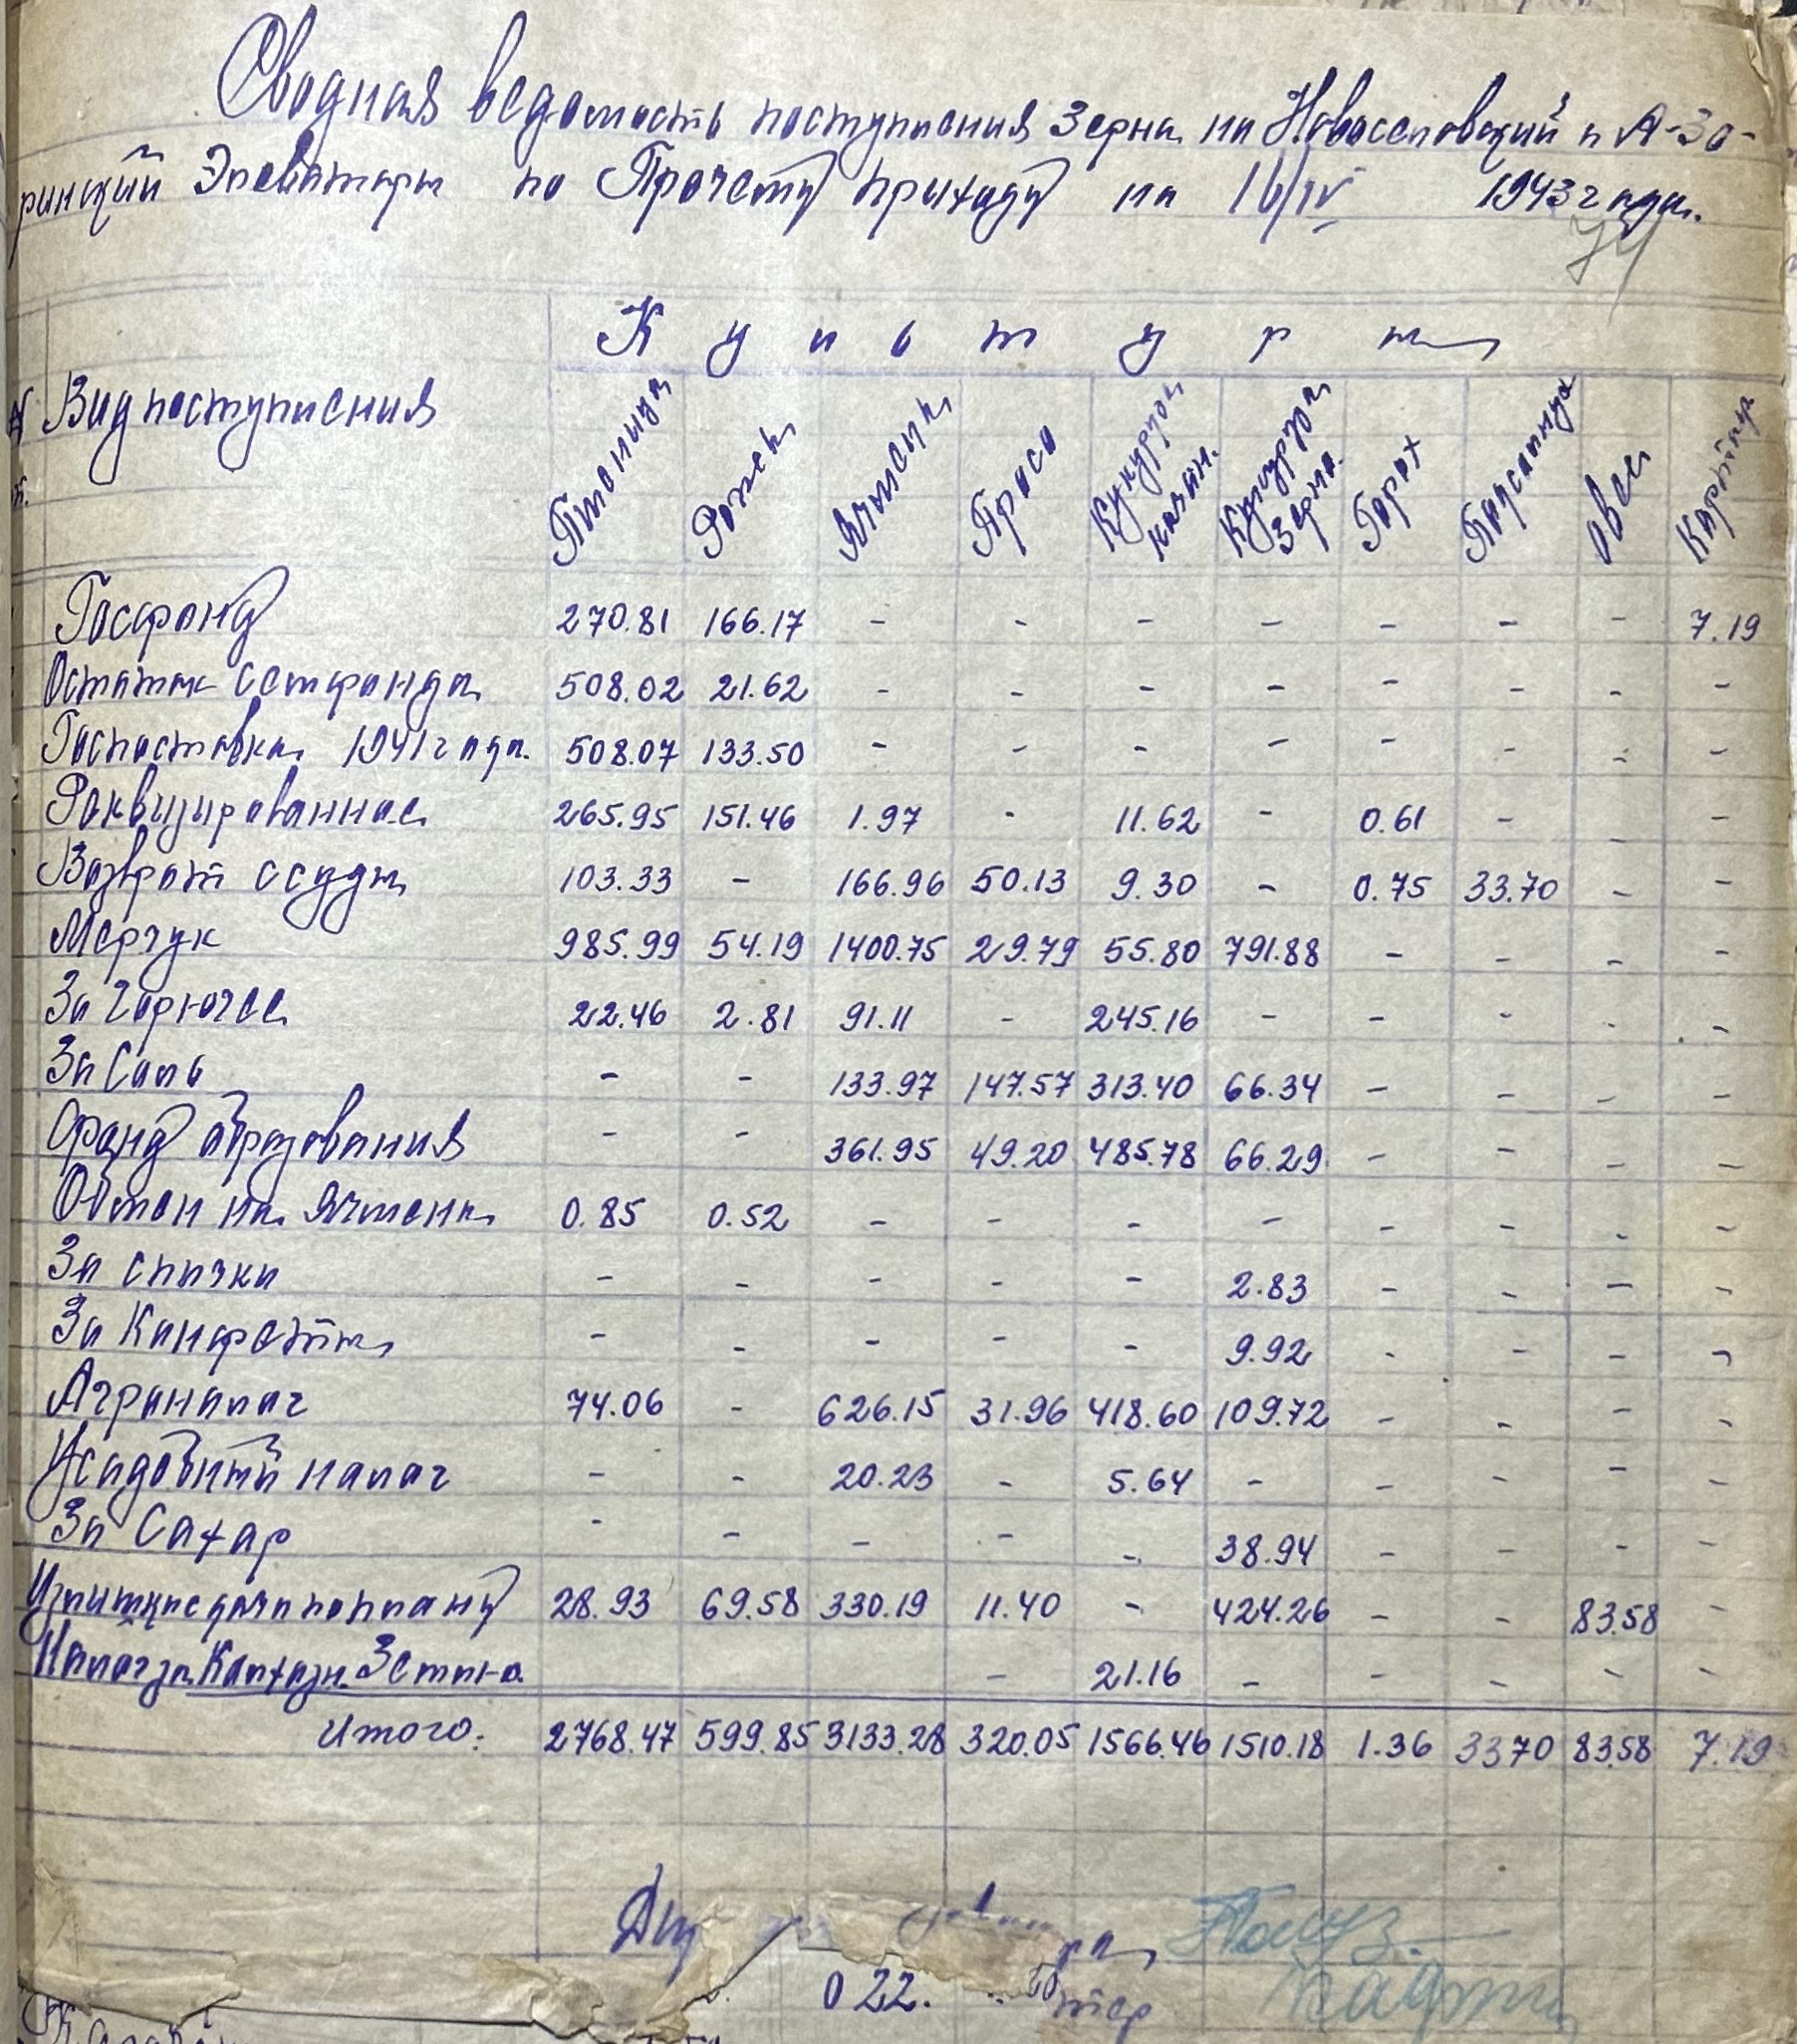 Сводная ведомость поступления зерна на Новоселовский и А-За-
ринский Элеваторы по Прочему приходу на 16/IV 1943 года.
74
Культуры
Вид поступления Пшеница Рожь Ячмень Просо Кукуруза качан. Кукуруза зерно. Горох Подсолнух Овес Картоф
Госфонд 270.81 166.17 - - - - - - - 7.19
Остаток Сетфонда 508.02 21.62 - - - - - - - -
Госпоставка 1941 года. 508.07 133.50 - - - - - - - -
Реквизированное 265.95 151.46 1.97 - 11.62 - 0.61 - - -
Возврат ссуды 103.33 - 166.96 50.13 9.30 - 0.75 33.70 - -
Мерчук 985.99 54.19 1400.75 29.79 55.80 791.88 - - - -
За Горючее 22.46 2.81 91.11 - 245.16 - - - - -
За Соль - - 133.97 147.57 313.40 66.34 - - - -
Фонд образования - - 361.95 49.20 485.78 66.29 - - - -
Обмен на Ячмень 0.85 0.52 - - - - - - - -
За спички - - - - - 2.83 - - - -
За Конфеты - - - - - 9.92 - - - -
Агроналог 74.06 - 626.15 31.96 418.60 109.72 - - - -
Усадобный налог - - 20.23 - 5.64 - - - - -
За Сахар - - - - - 38.94 - - - -
Излишки дачи по плану 28.93 69.58 330.19 11.40 - 424.26 - - 83.58 -
Налог за Колхозн. Землю - 21.16 - - - - -
Итого: 2768.47 599.85 3133.28 320.05 1566.46 1510.18 1.36 33.70 83.58 7.19
022.